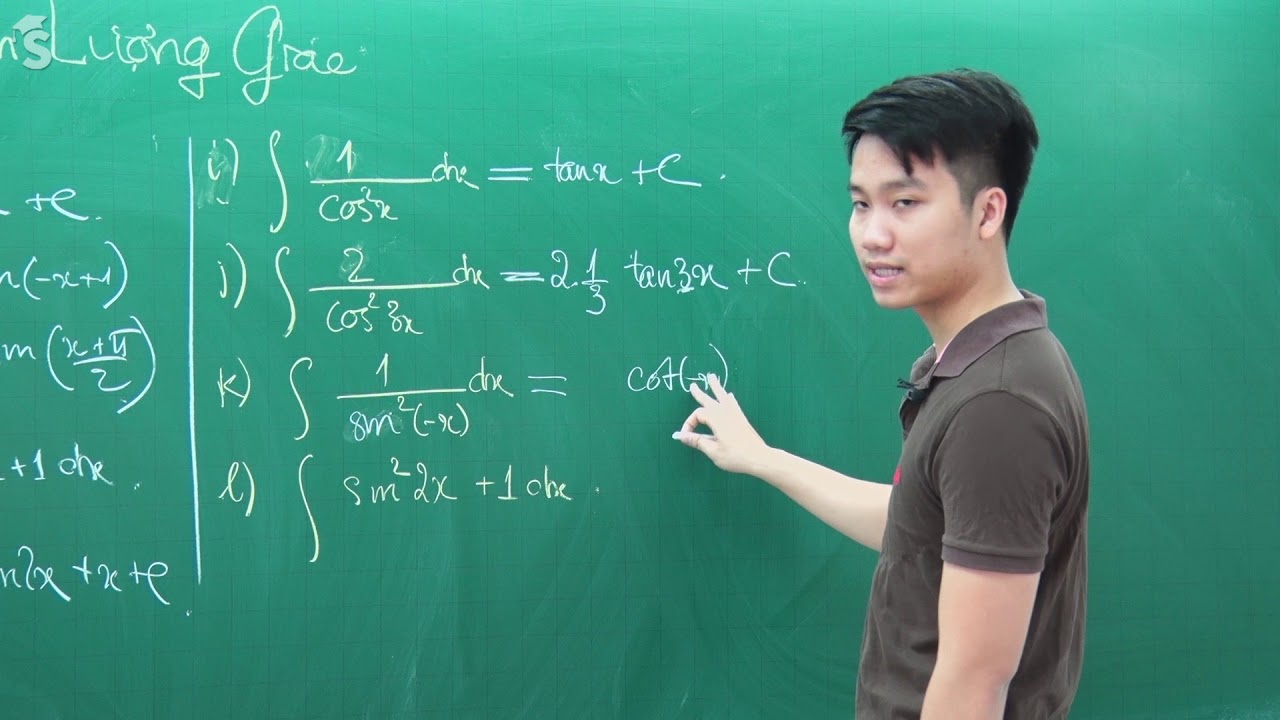 Lượng Giác
+C.
(-x+1)
(x+π/2)
+1 dx.
2x + x + C
i) ∫ 1/cos²x dx = tanx + C.
j) ∫ 2/cos²3x dx = 2.1/3 tan3x + C.
k) ∫ 1/sin²(-x) dx = cot(-x)
l) ∫ sin²2x + 1 dx.